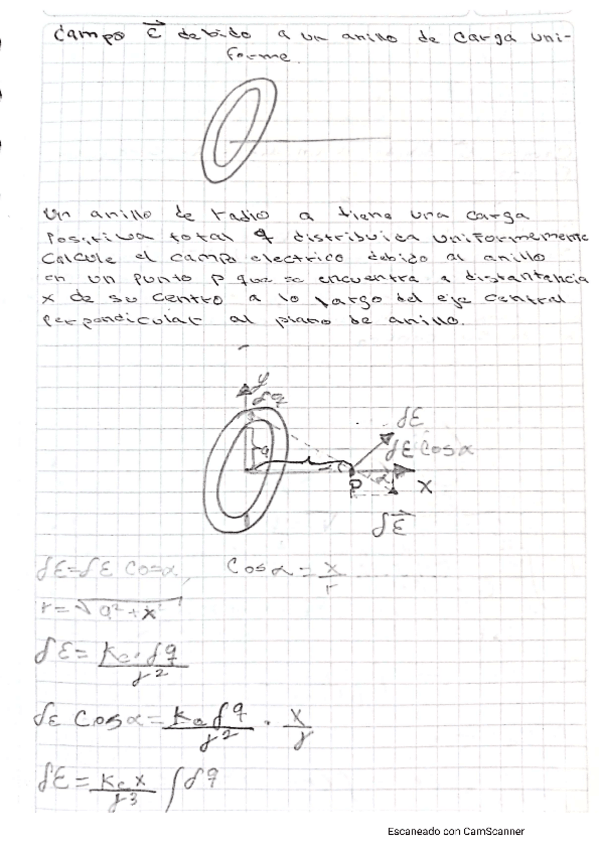 Campo E⃗ debido a un anillo de carga uni-
forme.
Un anillo de radio a tiene una carga
Positiva total q distribuida uniformemente
Calcule el campo electrico debido al anillo
en un punto P que se encuentra a distantancia
x de su centro a lo largo del eje central
perpendicular al plano de anillo.
y
dq
dE
a
dE cosα
P
α
x
dE⃗
dE=dE Cosα, Cosα = x/r
r=√a²+x²
dE = Ke·dq/r²
dE Cosα = Ke dq/r² · x/r
dE = Ke x/r³ ∫dq
Escaneado con CamScanner